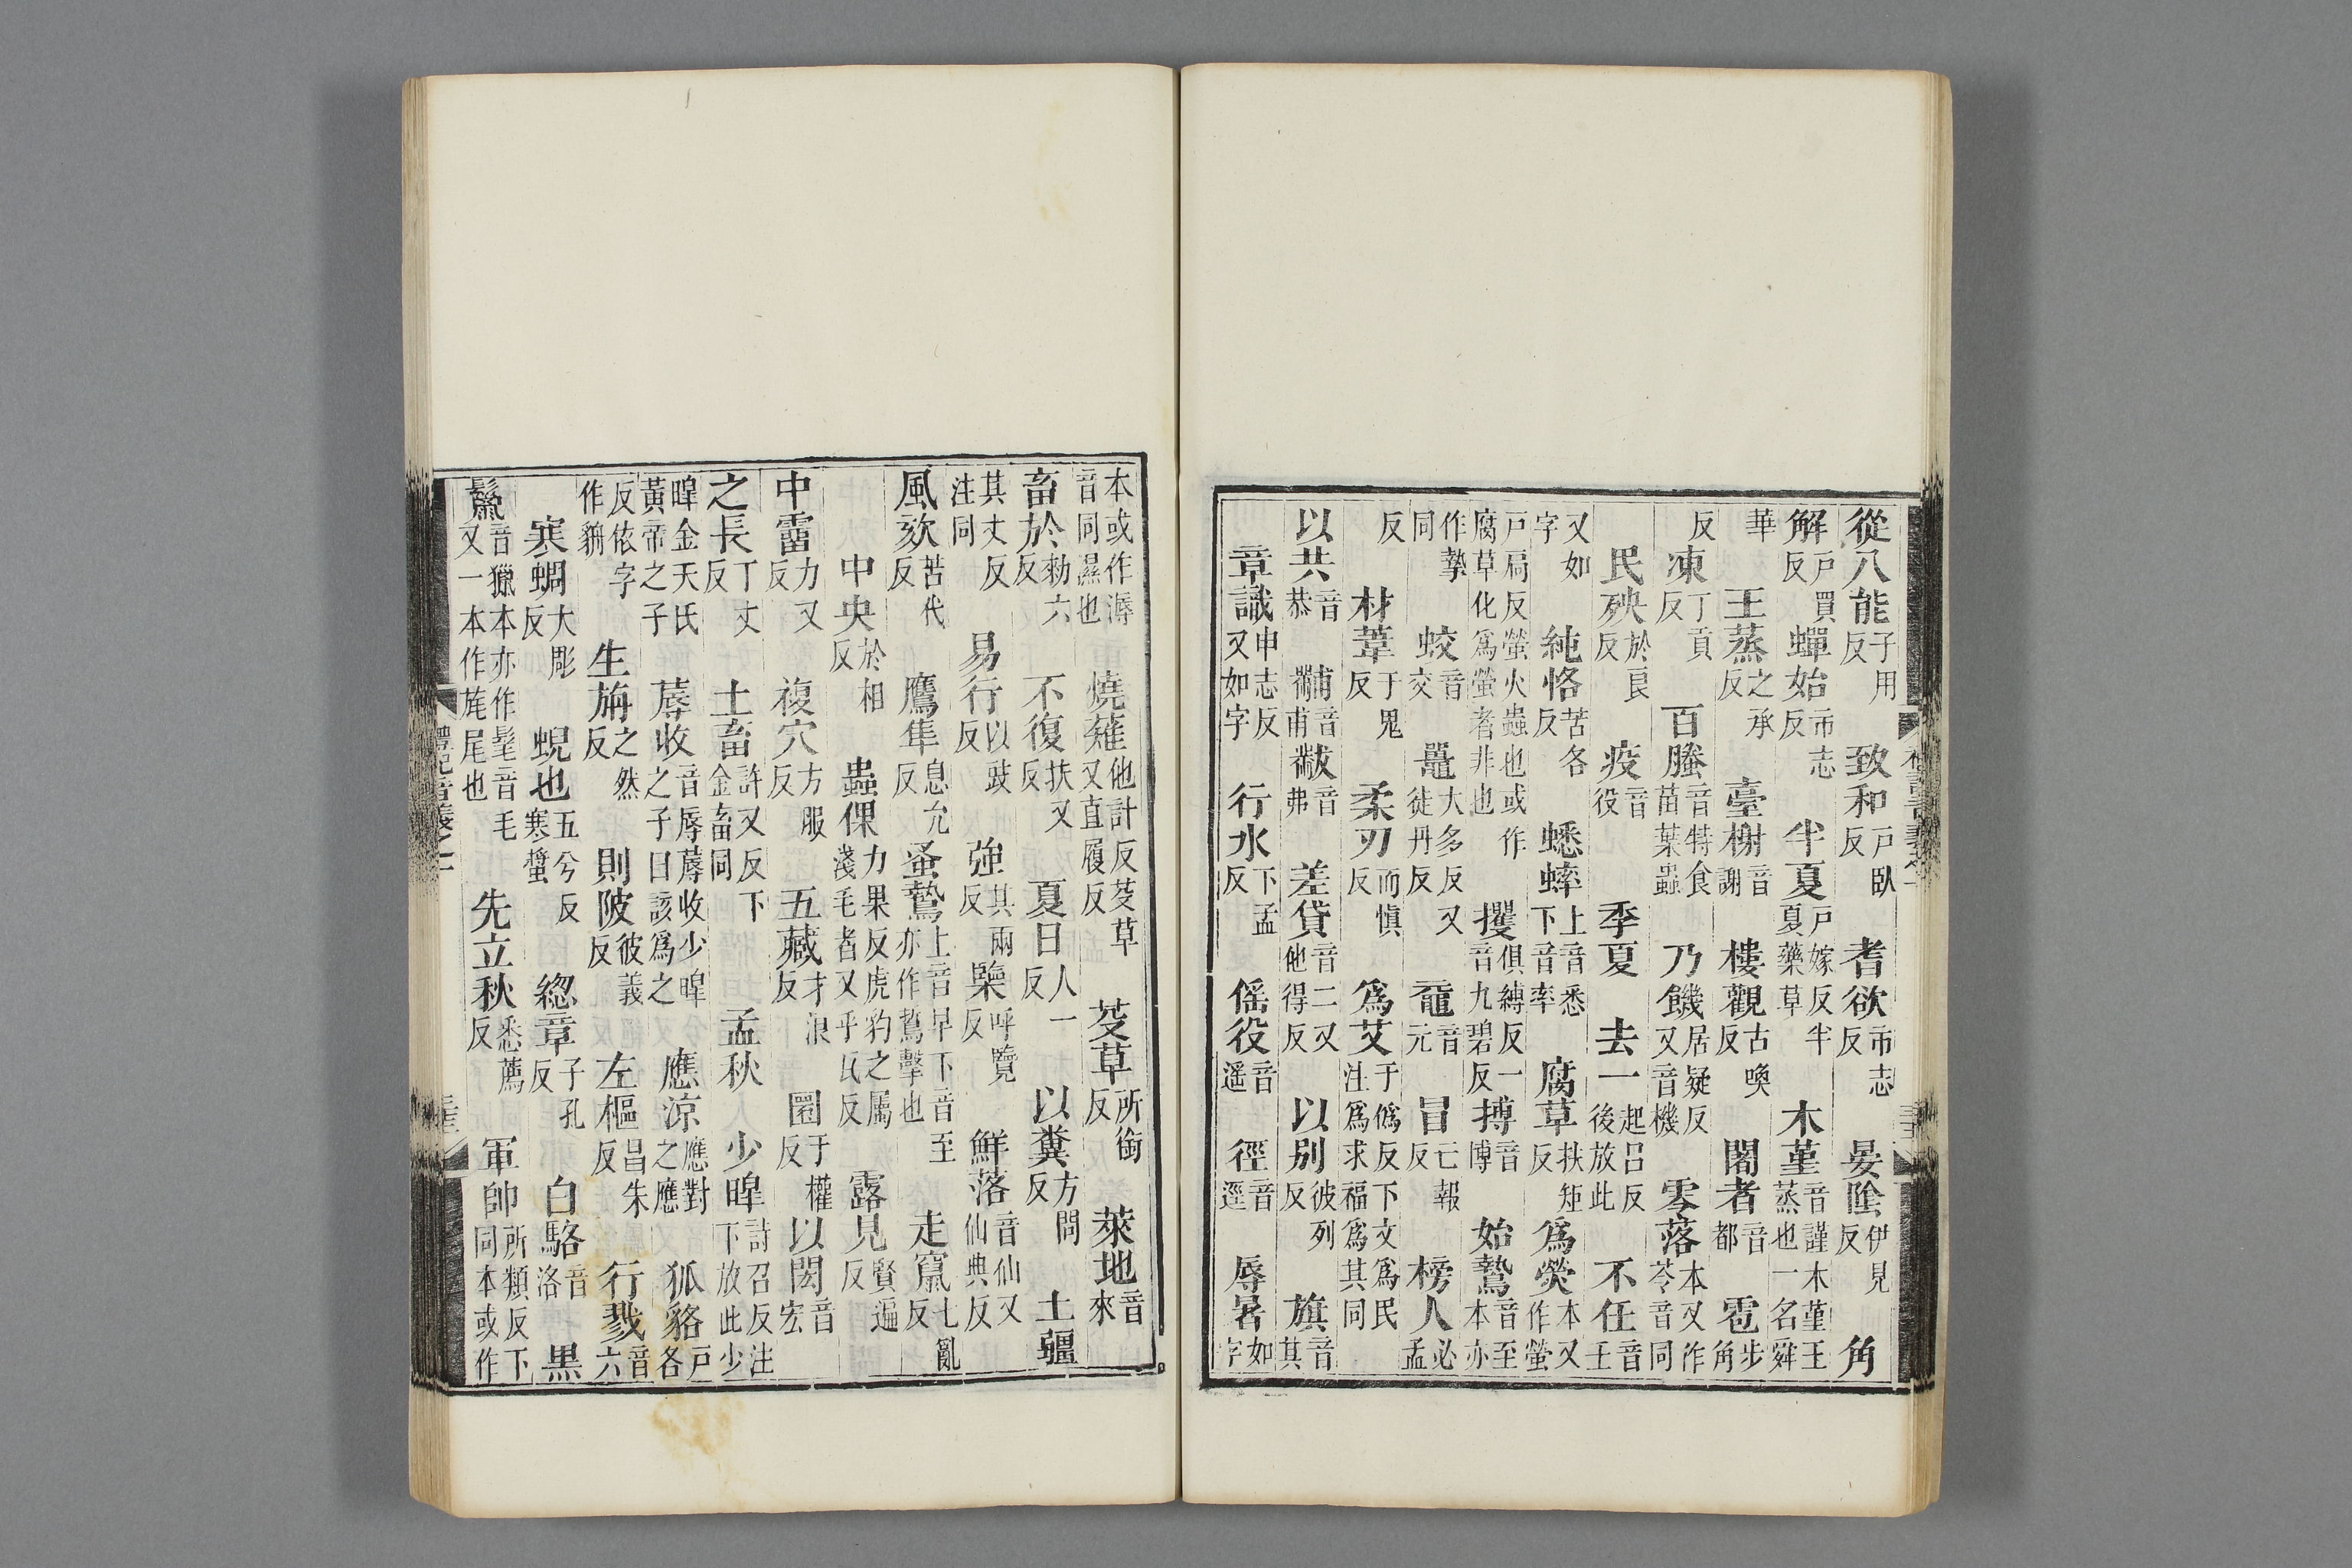 從八能子用反 致和戸臥反 耆欲市志反 晏陰伊見反 角
解戸買反 蟬始市志反 半夏戸嫁反半夏藥草 木堇音謹木堇王蒸也一名舜
華 王蒸之承反 臺榭音謝 樓觀古喚反 闍者音都 雹步角
反 凍丁貢反 百螣音特食苗葉蟲 乃饑居疑反又音機 零落本又作苓音同
民殃於良反 疫音役 季夏 去一起呂反後放此 不任音壬
又如字 純恪苦各反 蟋蟀上音悉下音率 腐草扶矩反 爲熒本又作螢
戸扃反螢火蟲也或作腐草化爲螢者非也 攫俱縛反一音九碧反 搏音博 始鷙音至本亦
作摯同 蛟音交 鼉大多反又徒丹反 黿音元 冒亡報反 榜人必孟
反 材葦于鬼反 柔刃而愼反 爲艾于僞反下文爲民注爲求福爲其同
以共音恭 黼音甫 黻音弗 差貸音二又他得反 以別彼列反 旗音其
章識申志反又如字 行水下孟反 傜役音遥 徑音逕 辱暑如字
本或作溽音同濕也 燒薙他計反又直履反 芟草 芟草所銜反 萊地音來
畜於勑六反 不復扶又反 夏日人一反 以糞方問反 土疆
其丈反注同 易行以豉反 強其兩反 㯺呼覽反 鮮落音仙又仙典反
風欬苦代反 鷹隼息允反 蚤鷙上音早下音至亦作鷙擊也 走竄七亂反
中央於相反 蟲倮力果反虎豹之屬淺毛者又乎瓦反 露見賢遍反
中霤力又反 複穴方服反 五藏才浪反 圜于權反 以閎音宏
之長丁丈反 土畜許又反下金畜同 孟秋 少暤詩召反注下放此少
暤金天氏黃帝之子 蓐收音辱蓐收少暤之子曰該爲之 應涼應對之應 狐貉戸各
反依字作貈 生旃之然反 則陂彼義反 左樞昌朱反 行戮音六
寒蜩大彫反 蜺也五兮反寒螿 緫章子孔反 白駱音洛 黒
鬣音獵本亦作髦音毛又一本作旄尾也 先立秋悉薦反 軍帥所類反下同本或作